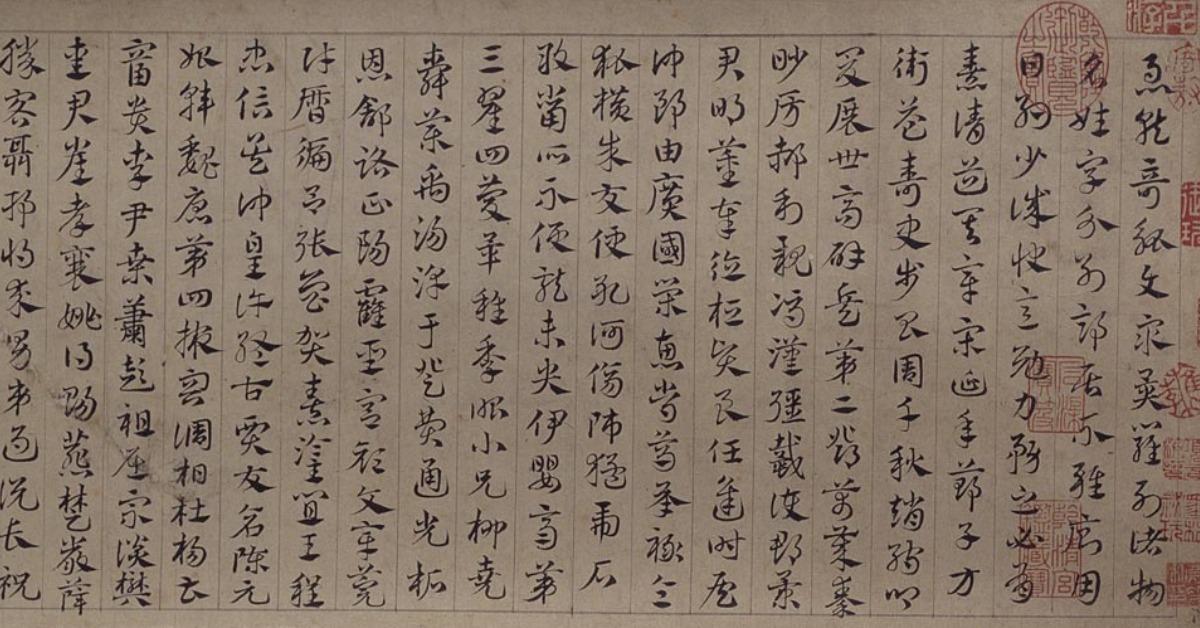 急就奇觚與衆異羅列諸物
名姓字分別部居不雜廁用
日約少誠快意勉力務之必有
憙請道其章宋延年鄭子方
衛益壽史步昌周千秋趙孺卿
爰展世高辟兵第二鄧萬歲秦
眇房郝利親馮漢彊戴護郡景
君明董奉德桓賢良任逢時侯
仲郎由廣國榮惠常烏承祿令
狐橫朱交便孔何傷師猛虎石
敢當所不侵龍未央伊嬰齊第
三翟回慶畢稚季昭小兄柳堯
舜樂禹湯淳于登費通光柘
恩舒路正陽霍聖宮顏文章莞
財曆編呂張魯賀憙灌宜王程
忠信吳仲皇許終古賈友倉陳元
始韓魏唐第四掖容調柏杜楊
富貴李尹桑蕭彭祖屈宗談樊
愛君崔孝襄姚得賜燕楚嚴薛
勝客聶邗將求男弟過說長祝